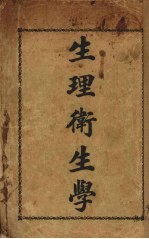 生理衛生學